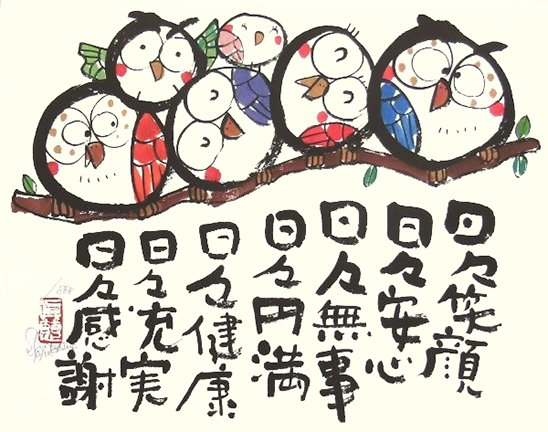 日々笑顔
日々安心
日々無事
日々円満
日々健康
日々充実
日々感謝